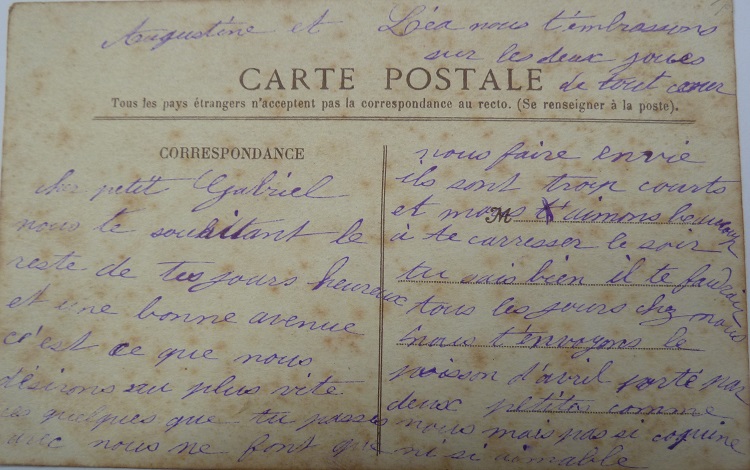 Augustine et Léa nous t'embrassons
sur les deux joues
de tout cœur
CARTE POSTALE
Tous les pays étrangers n'acceptent pas la correspondance au recto. (Se renseigner à la poste).
CORRESPONDANCE
cher petit Gabriel
nous te souhaitant le
reste de tes jours heureux
et une bonne avenue
c'est ce que nous
désirons au plus vite
ces quelques que tu passes
avec nous ne font que
nous faire envie
ils sont trop courts
et M nous t'aimons beaucoup
à te carresser le soir
tu sais bien il te faudrait
tous les jours chez nous
nous t'envoyons le
poisson d'avril porté par
deux petits comme
nous mais pas si coquine
ni si aimable